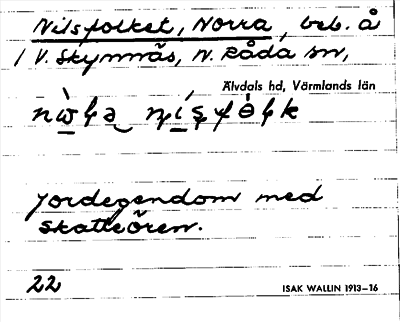 Nilsfolket, Norra, beb. å
/ V. Skymnäs, N. Råda sn,
Älvdals hd, Värmlands län
Jordegendom med
skatteören.
22 ISAK WALLIN 1913–16